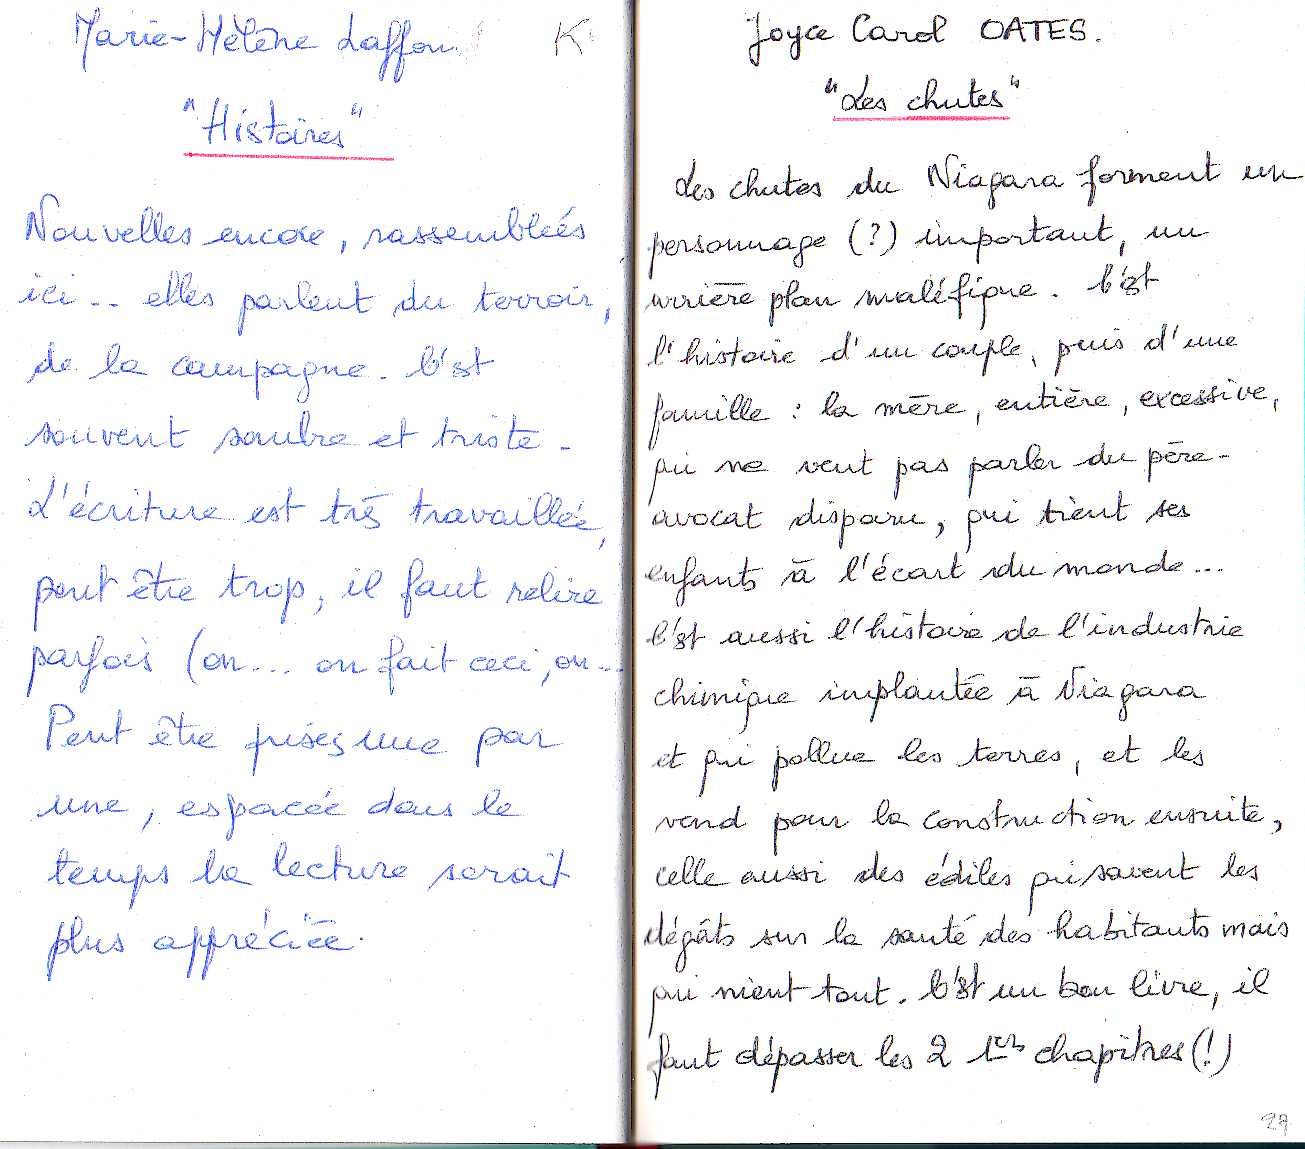 Marie-Hélène Laffon K
"Histoires"
Nouvelles encore, rassemblées
ici.. elles parlent du terroir,
de la campagne. C'est
souvent sombre et triste.
L'écriture est très travaillée,
peut être trop, il faut relire
parfois (on... on fait ceci, on...
Peut être prises une par
une, espacée dans le
temps la lecture serait
plus appréciée.
Joyce Carol OATES.
"Les chutes"
Les chutes du Niagara forment un
personnage (?) important, un
arrière plan maléfique. C'est
l'histoire d'un couple, puis d'une
famille : la mère, entière, excessive,
qui ne veut pas parler du père-
avocat disparu, qui tient ses
enfants à l'écart du monde...
C'est aussi l'histoire de l'industrie
chimique implantée à Niagara
et qui pollue les terres, et les
vend pour la construction ensuite,
celle aussi des édiles qui savent les
dégâts sur la santé des habitants mais
qui nient tout. C'est un bon livre, il
faut dépasser les 2 1ers chapitres (!)